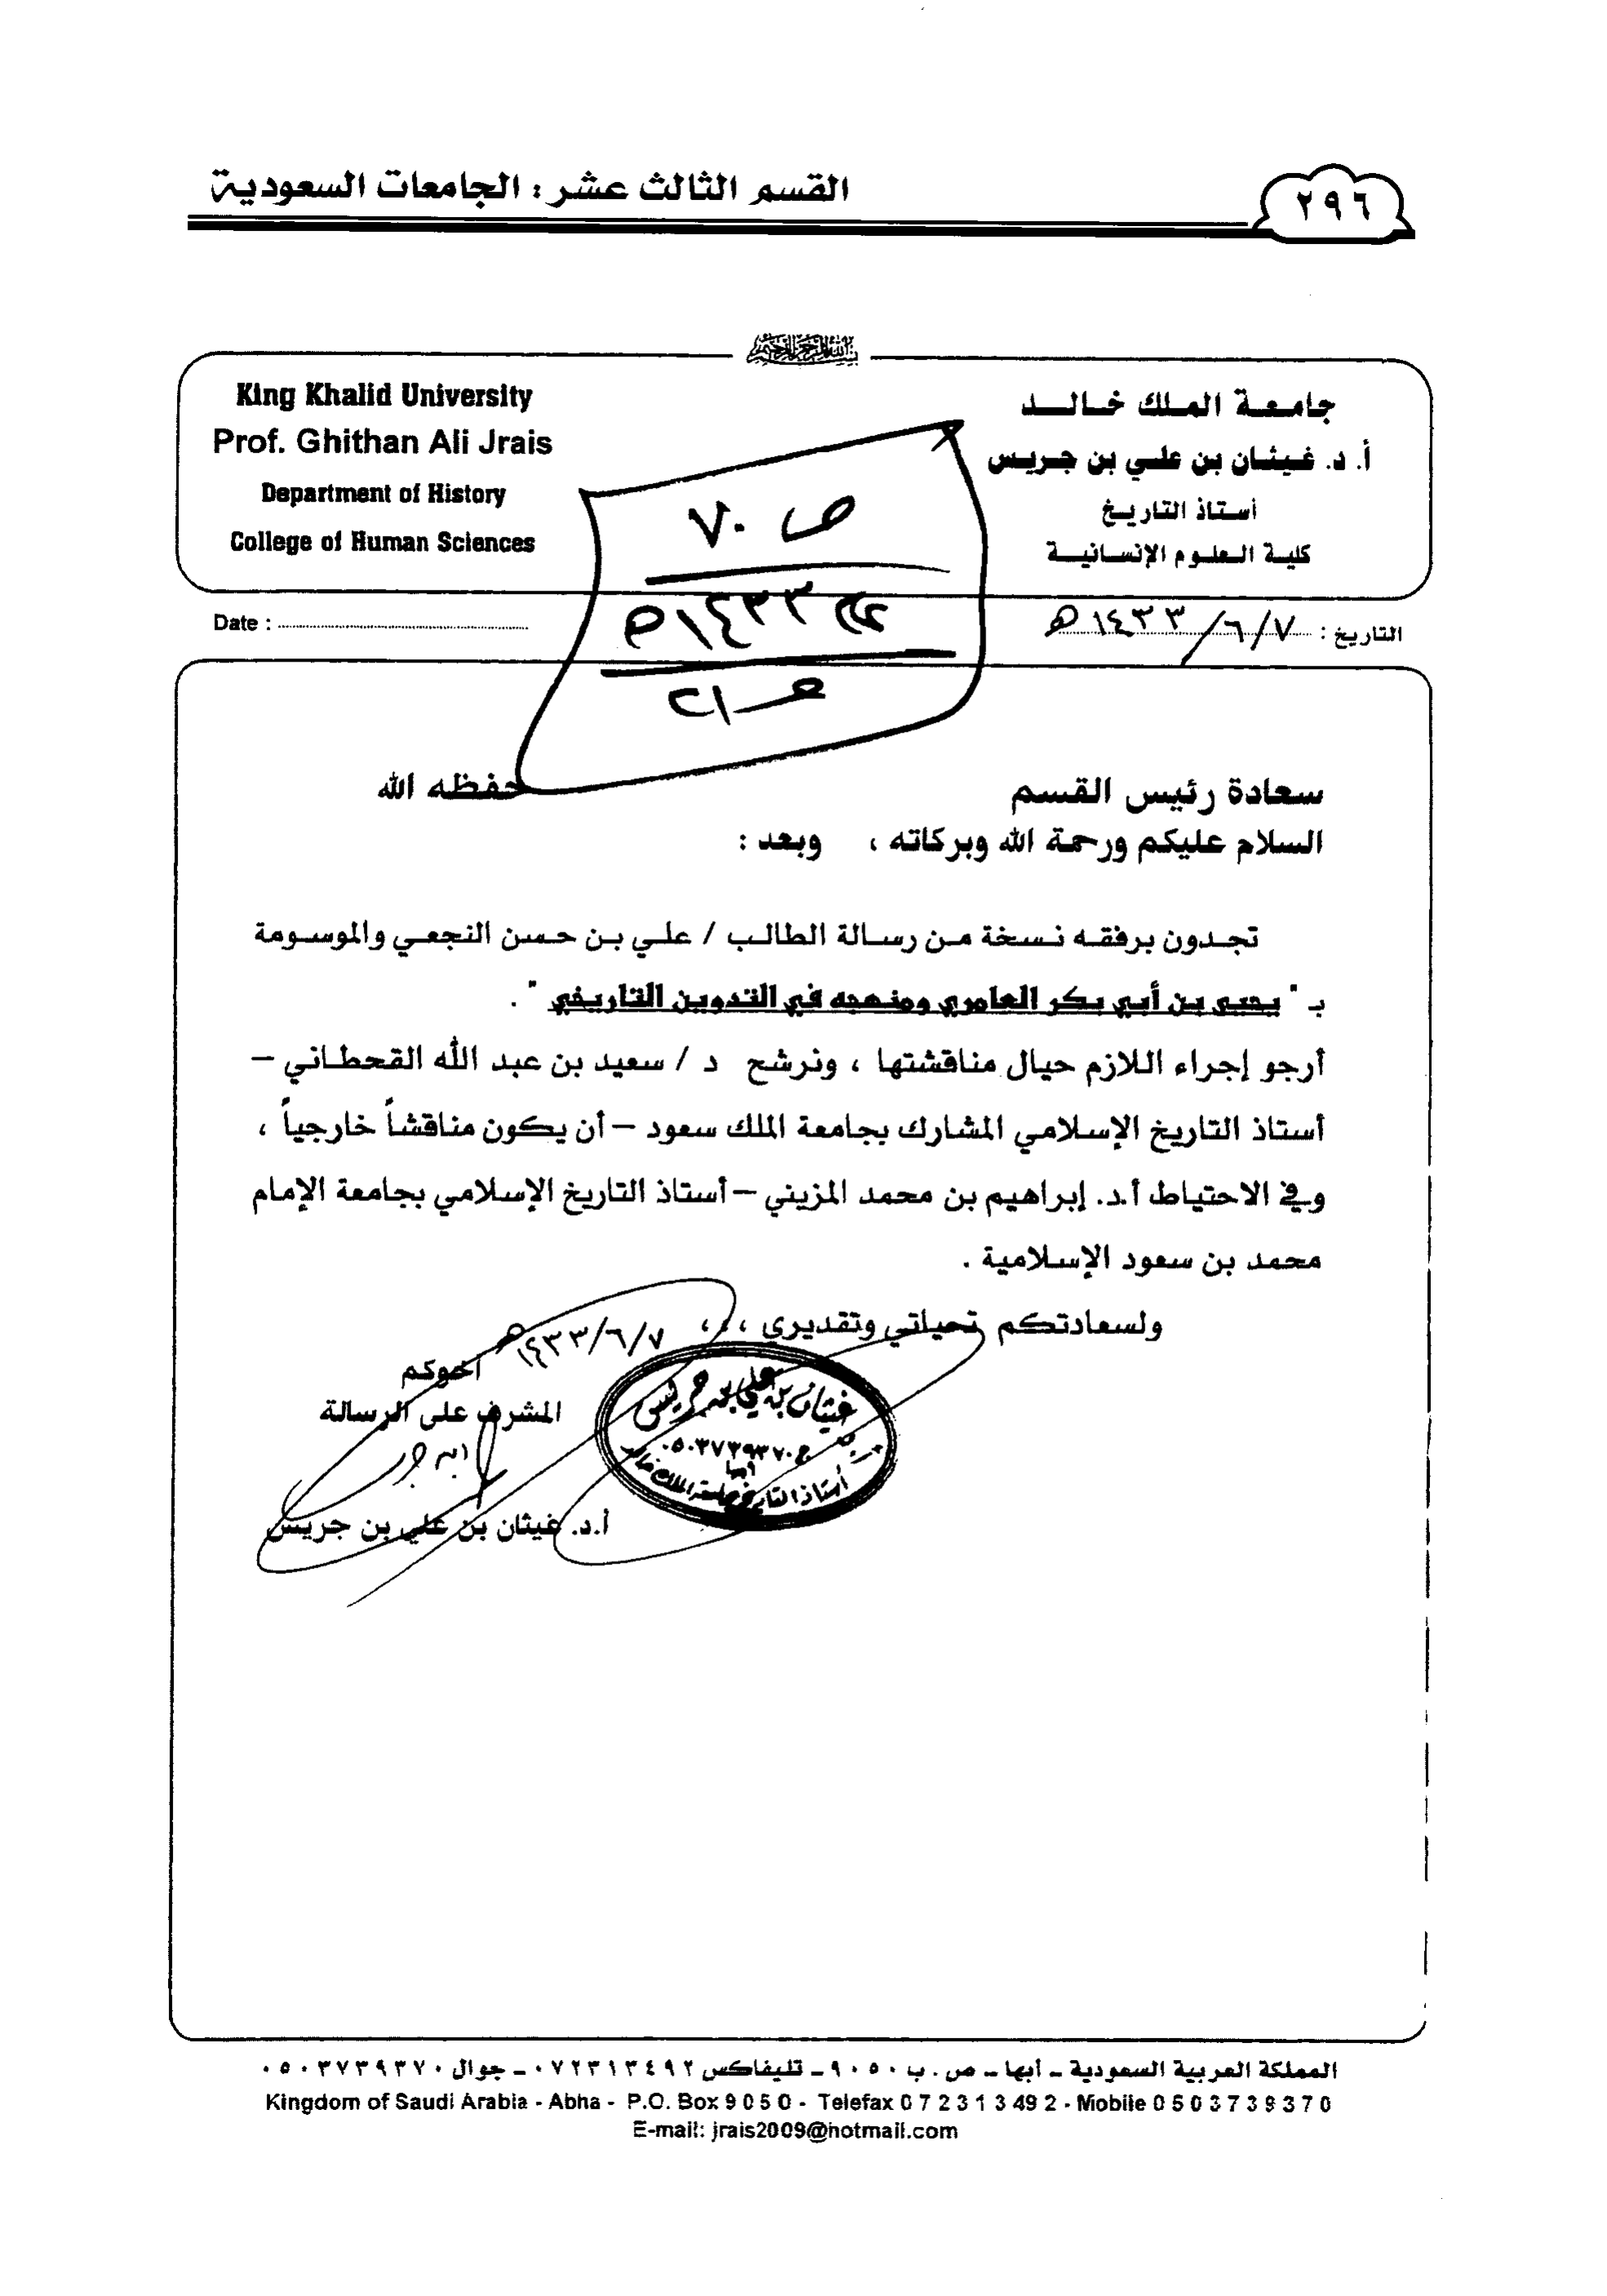 القسم الثالث عشر : الجامعات السعودية
٢٩٦
بسم الله الرحمن الرحيم
جامعة الملك خالد
أ. د. غيثان بن علي بن جريس
أستاذ التاريخ
كلية العلوم الإنسانية
King Khalid University
Prof. Ghithan Ali Jrais
Department of History
College of Human Sciences
ص ٧٠
١٤٣٣هـ
التاريخ : ٧/٦/١٤٣٣هـ
Date :
سعادة رئيس القسم حفظه الله
السلام عليكم ورحمة الله وبركاته ، وبعد :
تجدون برفقه نسخة من رسالة الطالب / علي بن حسن النجعي والموسومة
بـ " يحيى بن أبي بكر العامري ومنهجه في التدوين التاريخي " .
أرجو إجراء اللازم حيال مناقشتها ، ونرشح د / سعيد بن عبد الله القحطاني –
أستاذ التاريخ الإسلامي المشارك بجامعة الملك سعود – أن يكون مناقشاً خارجياً ،
وفي الاحتياط أ.د. إبراهيم بن محمد المزيني – أستاذ التاريخ الإسلامي بجامعة الإمام
محمد بن سعود الإسلامية .
ولسعادتكم تحياتي وتقديري ،،،
٧/٦/١٤٣٣هـ
أخوكم
المشرف على الرسالة
أ.د. غيثان بن علي بن جريس
غيثان بن علي بن جريس
ج ٠٥٠٣٧٣٩٣٧٠
أبها
أستاذ التاريخ بجامعة الملك خالد
المملكة العربية السعودية ـ أبها ـ ص . ب ٩٠٥٠ ـ تليفاكس ٠٧٢٣١٣٤٩٢ ـ جوال ٠٥٠٣٧٣٩٣٧٠
Kingdom of Saudi Arabia - Abha - P.O. Box 9 0 5 0 - Telefax 0 7 2 3 1 3 49 2 - Mobile 0 5 0 3 7 3 9 3 7 0
E-mail: jrais2009@hotmail.com